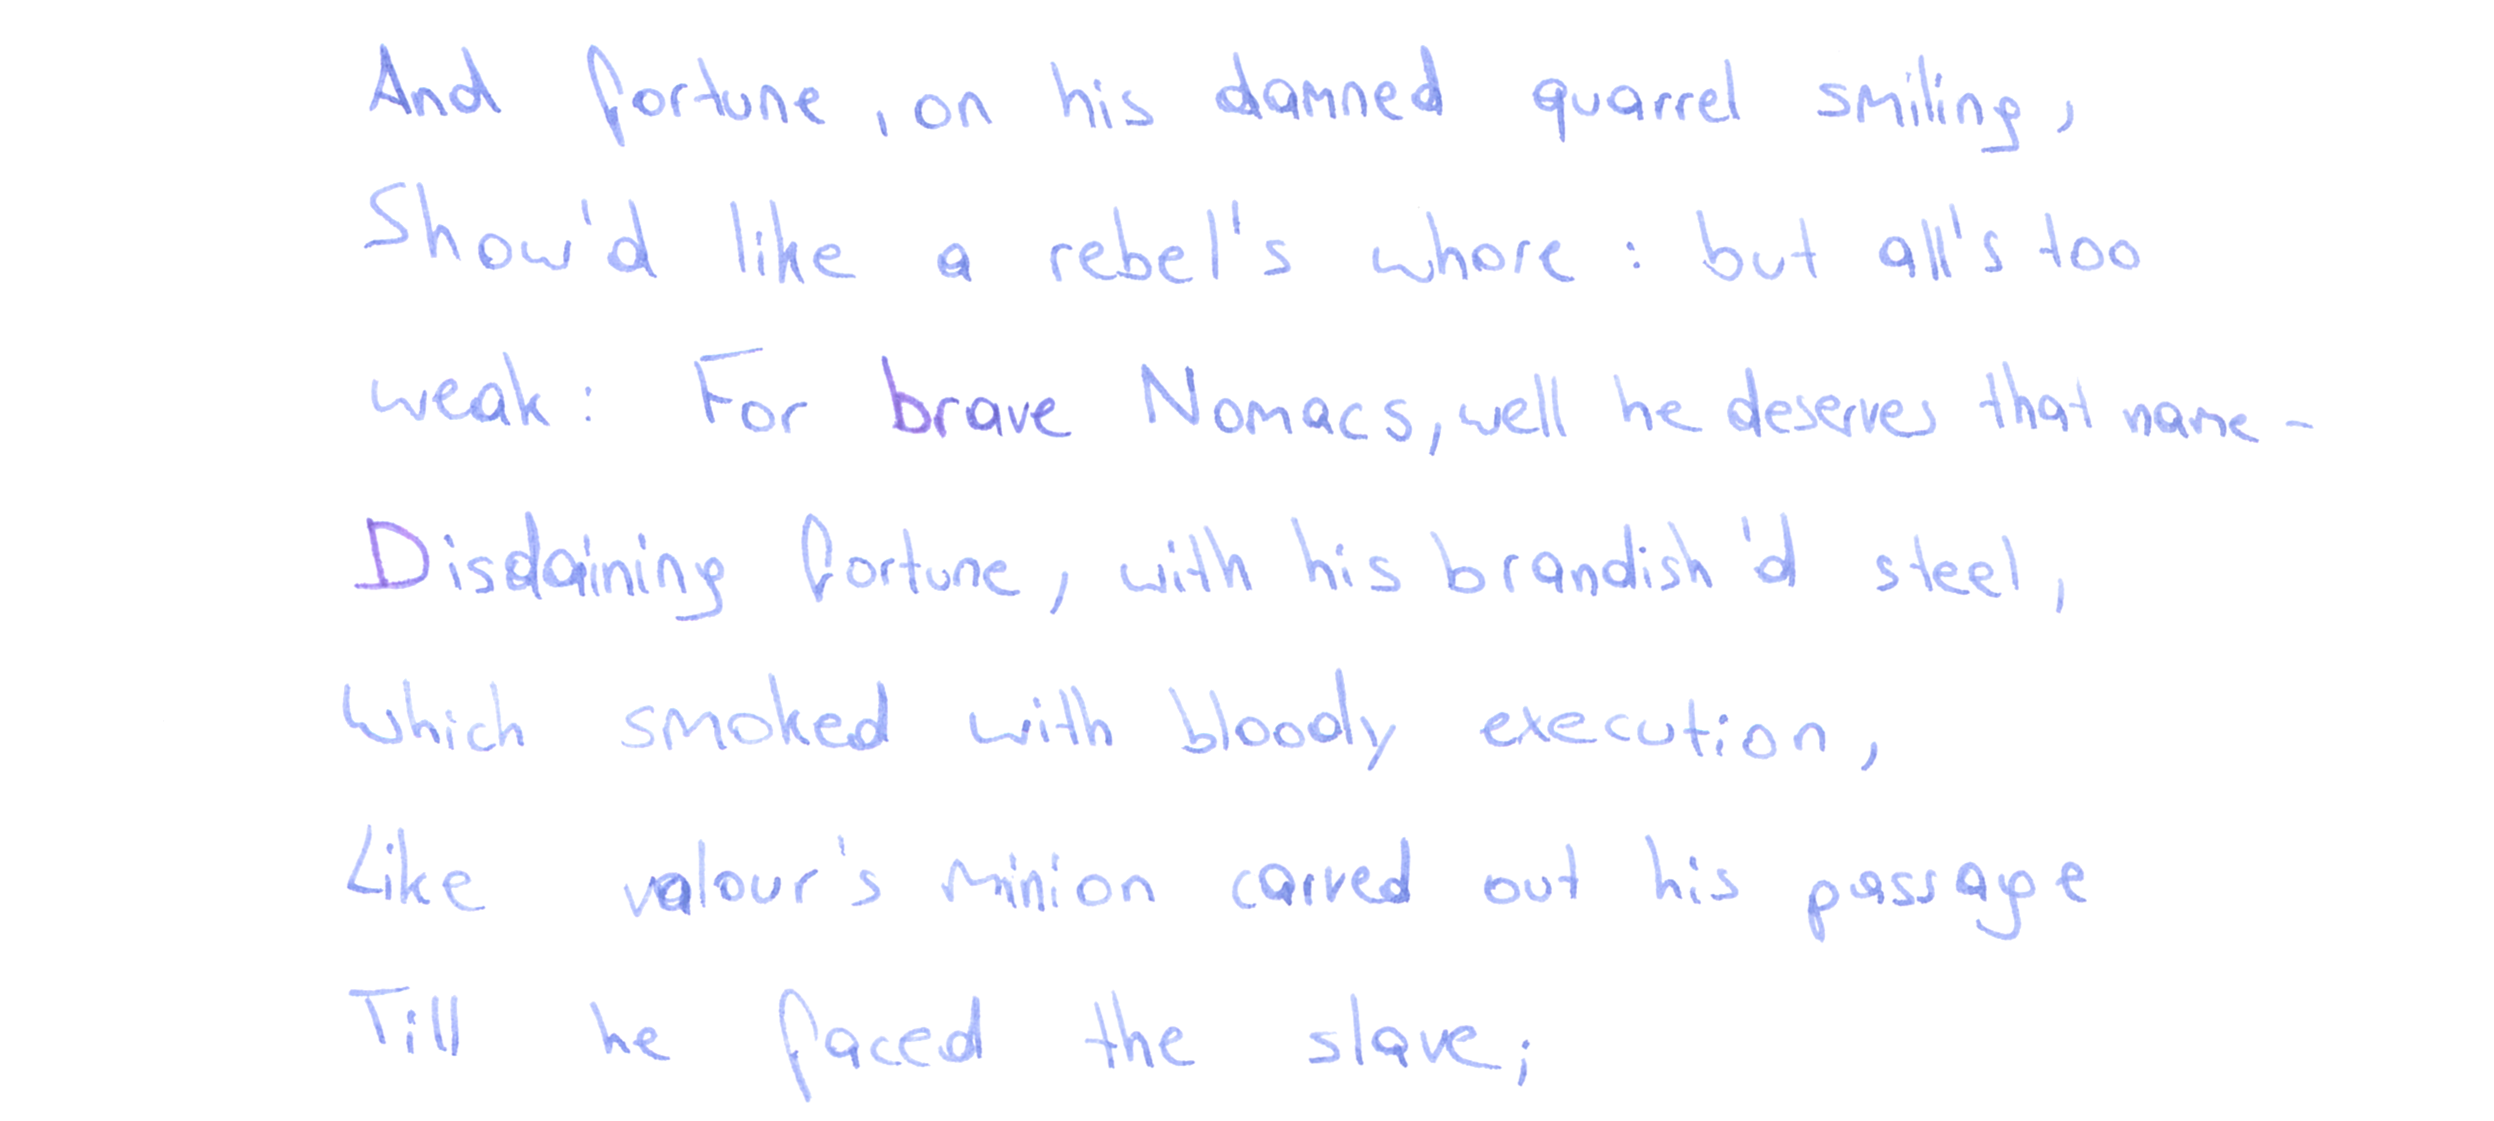 And fortune, on his damned quarrel smiling,
Show'd like a rebel's whore: but all's too
weak: For brave Nomacs, well he deserves that name -
Disdaining fortune, with his brandish'd steel,
Which smoked with bloody execution,
Like valour's minion carved out his passage
Till he faced the slave;